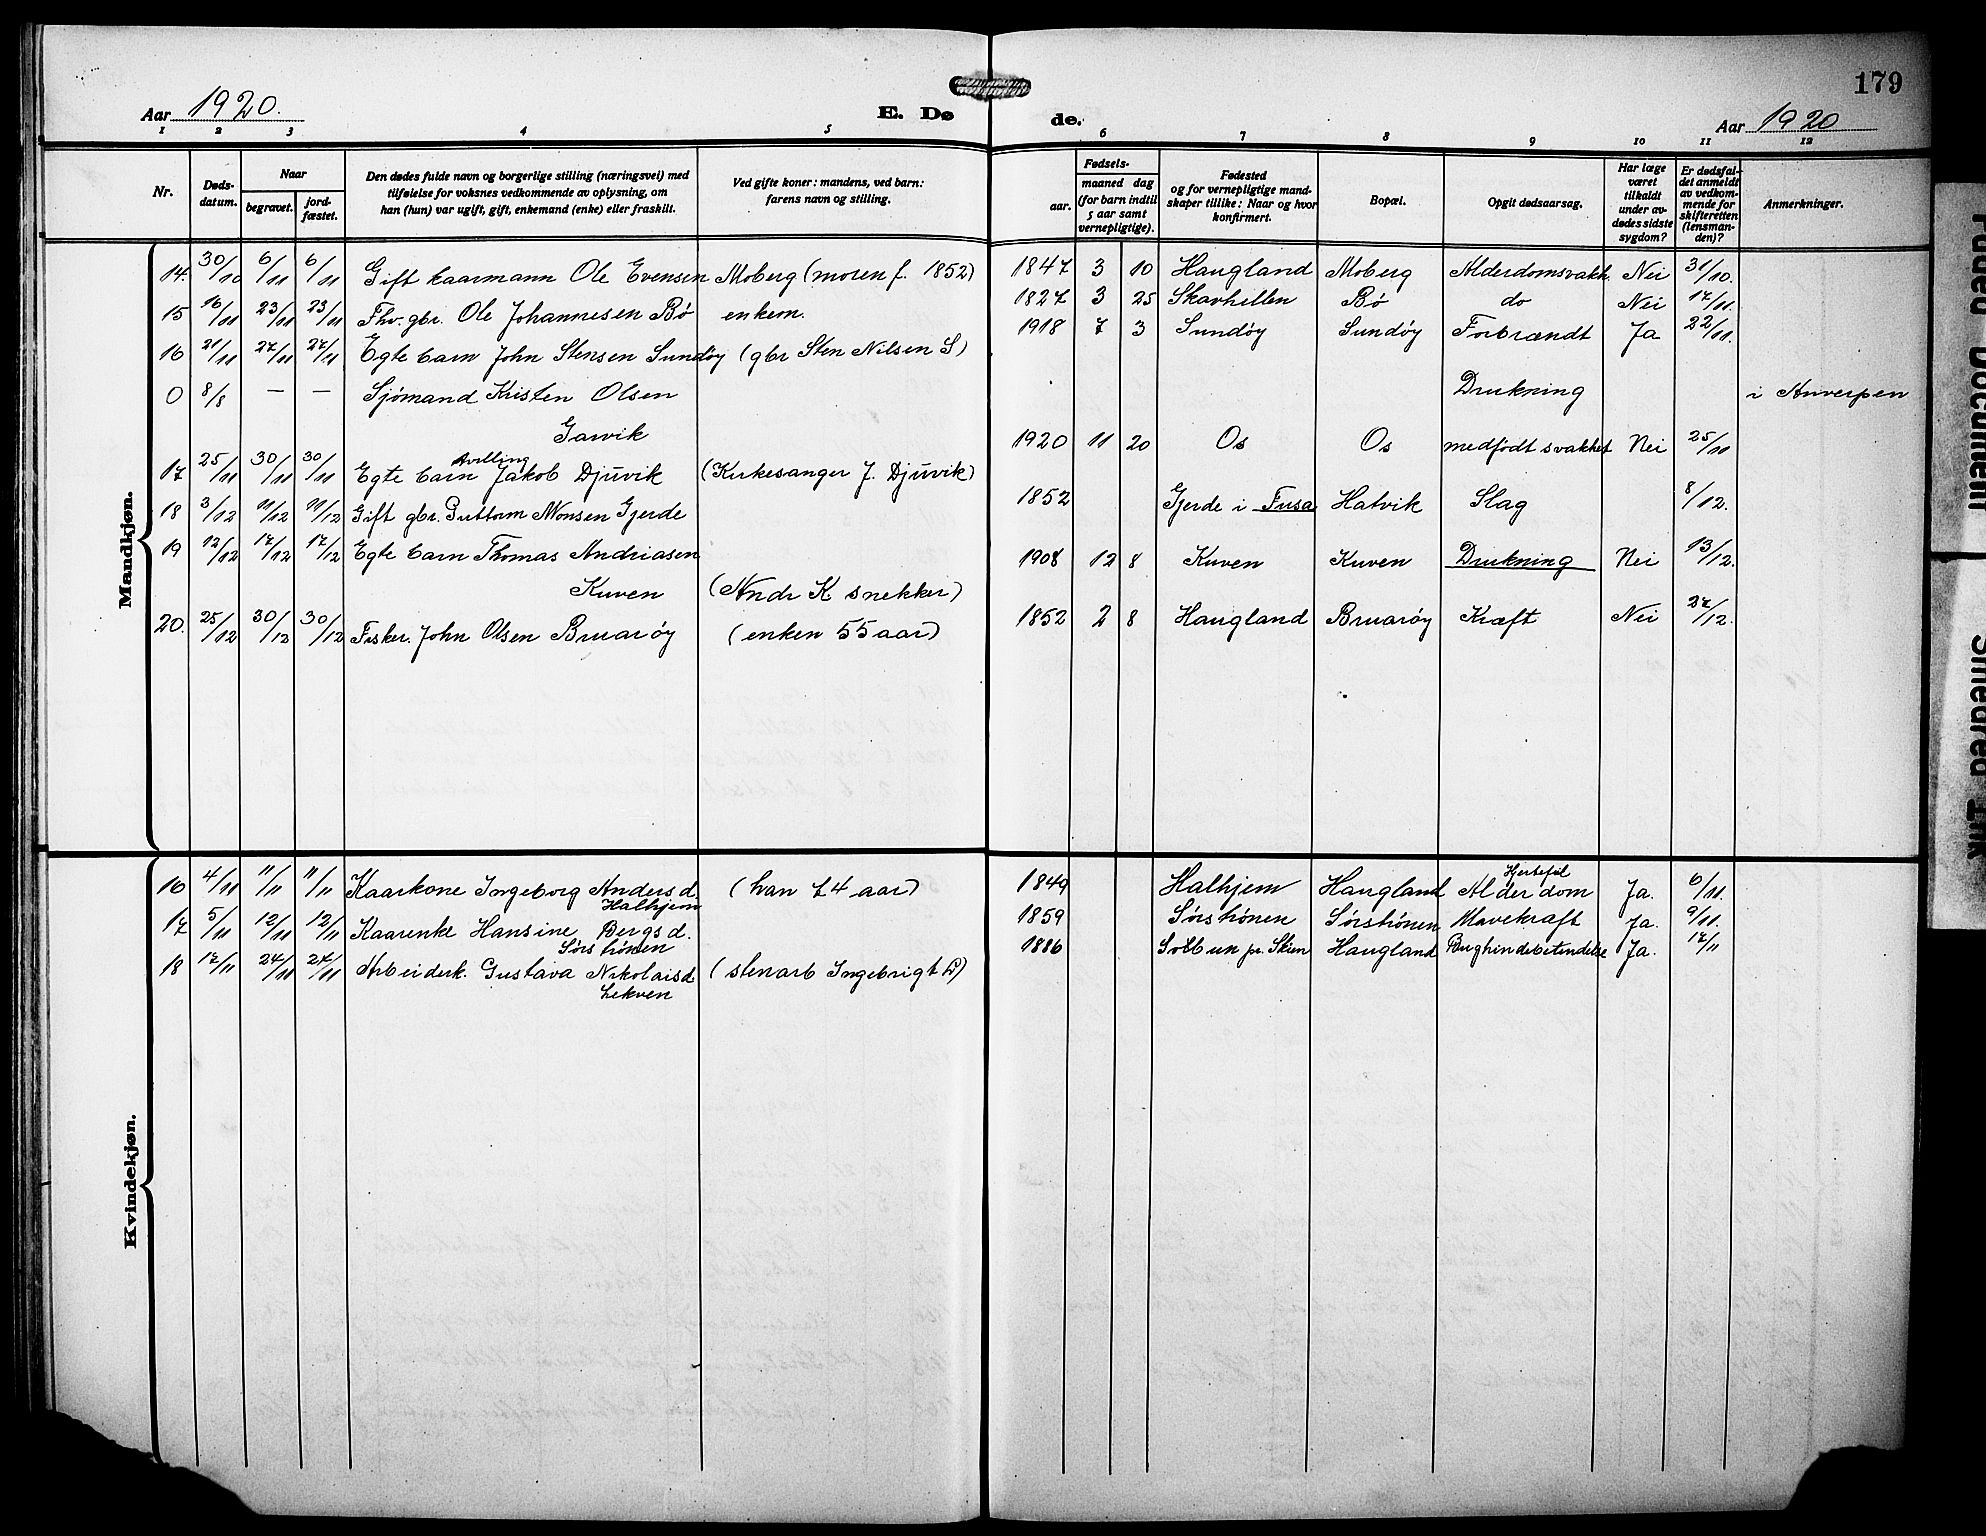 179
Aar 1920.
E. Dø
de.
Aar 1920
1 2 3 4 5 6 7 8 9 10 11 12
Nr.
Døds-
datum.
Naar
begravet.
jord-
fæstet.
Den dødes fulde navn og borgerlige stilling (næringsvei) med
tilføielse for voksnes vedkommende av oplysning, om
han (hun) var ugift, gift, enkemand (enke) eller fraskilt.
Ved gifte koner: mandens, ved barn:
farens navn og stilling.
Fødsels-
aar.
maaned dag
(for barn indtil
5 aar samt
vernepligtige).
Fødested
og for vernepligtige mand-
skaper tillike: Naar og hvor
konfirmert.
Bopæl.
Opgit dødsaarsag.
Har læge
været
tilkaldt
under av-
dødes sidste
sygdom?
Er dødsfal-
det anmeldt
av vedkom-
mende for
skifteretten
(lensman-
den)?
Anmerkninger.
Mandkjøn.
14. 30/10 6/11 6/11 Gift kaarmann Ole Evensen Moberg (moren f. 1852) 1847 3 10 Haugland Moberg Alderdomsvakh. Nei 31/10.
15 16/11 23/11 23/11 Fhv. gbr. Ole Johannesen Bø enkem. 1827 3 25 Skavhellen Bø do Nei 17/11.
16 21/11 27/11 27/11 Egte barn John Stensen Sundøy (gbr Sten Nilsen S) 1918 7 3 Sundøy Sundøy Forbrændt Ja 22/11.
0 8/8 — — Sjömand Kristen Olsen Drukning i Anverpen
Garvik
Avilling
17 25/11 30/11 30/11 Egte barn Jakob Djuvik (Kirkesanger J. Djuvik) 1920 11 20 Os Os medfödt svakhet Nei 25/11
18 3/12 11/12 11/12 Gift gbr. Guttorm Monsen Gjerde 1852 Gjerde i Fusa Hatvik Slag 8/12.
19 12/12 17/12 17/12 Egte barn Thomas Andriasen 1908 12 8 Kuven Kuven Drukning Nei 13/12.
Kuven (Andr K snekker)
20. 25/12 30/12 30/12 Fisker. John Olsen Bruarøy (enken 55 aar) 1852 2 8 Haugland Bruarøy Kræft Nei 27/12.
Kvindekjøn.
16 4/11 11/11 11/11 Kaarkone Ingeborg Andersd. (han 74 aar) 1849 Halhjem Haugland Alderdom Ja. 6/11.
Halhjem
Hjertefeil
17 5/11 12/11 12/11 Kaarenke Hansine Bergsd. 1859 Sørstrønen Sørstrønen Mavekræft Ja. 9/11.
Sørstrønen
18 17/11 24/11 24/11 Arbeiderk. Gustava Nikolaisd (stenarb Ingebrigt L) 1886 Solbun pr. Skien Haugland Bughindebetendelse Ja. 17/11
Lekven
Faded Document
Smeared Ink